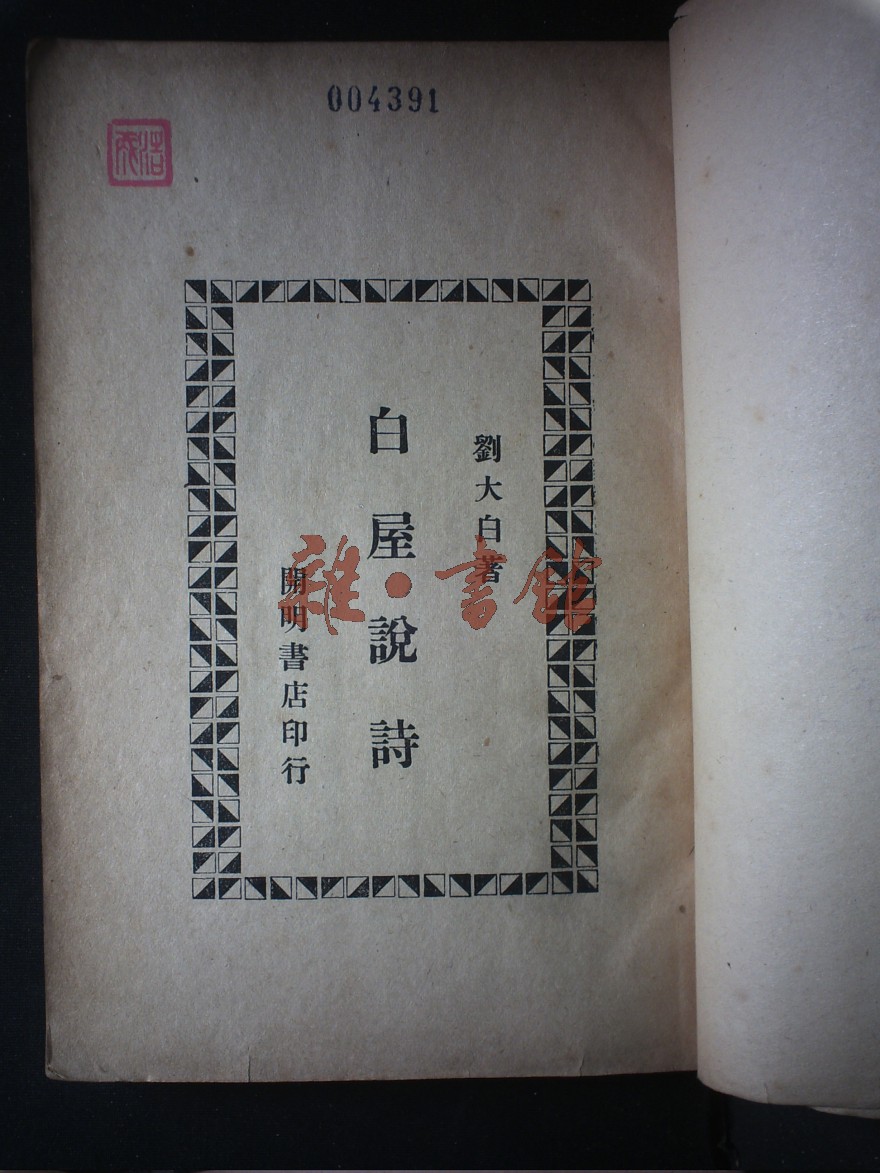 004391
劉大白著
白屋說詩
開明書店印行
雜·書館